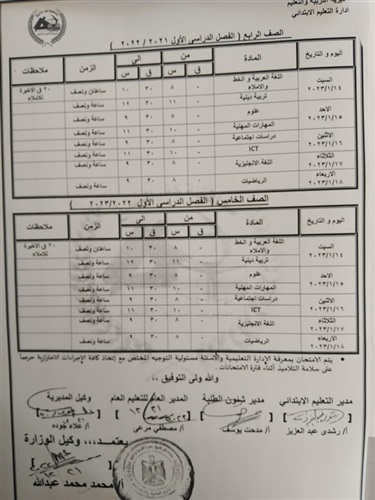 مديرية التربية والتعليم
ادارة التعليم الابتدائي
الصف الرابع ( الفصل الدراسى الأول ٢٠٢١ / ٢٠٢٢ )
اليوم و التاريخ المادة من الي الزمن ملاحظات
س ق س ق
السبت ٢٠٢٣/١/١٤ اللغة العربية و الخط والاملاء ٨ - ١٠ ٣٠ ساعتان ونصف ٣٠ في الاخيرة للاملاء
تربية دينية ١١ - ١٢ ٣٠ ساعة ونصف
الاحد ٢٠٢٣/١/١٥ علوم ٨ - ٩ ٣٠ ساعة ونصف
المهارات المهنية ١٠ - ١١ ٣٠ ساعة ونصف
الاثنين ٢٠٢٣/١/١٦ دراسات اجتماعية ٨ - ٩ ٣٠ ساعة ونصف
ICT ١٠ - ١١ ٣٠ ساعة ونصف
الثلاثاء ٢٠٢٣/١/١٧ اللغة الانجليزية ٨ - ٩ ٣٠ ساعة ونصف
الاربعاء ٢٠٢٣/١/١٨ الرياضيات ٨ - ٩ ٣٠ ساعة ونصف
الصف الخامس ( الفصل الدراسى الأول ٢٠٢٣/٢٠٢٢ )
اليوم و التاريخ المادة من الي الزمن ملاحظات
س ق س ق
السبت ٢٠٢٣/١/١٤ اللغة العربية و الخط والاملاء ٨ - ١٠ ٣٠ ساعتان ونصف ٣٠ في الاخيرة للاملاء
تربية دينية ١١ - ١٢ ٣٠ ساعة ونصف
الاحد ٢٠٢٣/١/١٥ علوم ٨ - ٩ ٣٠ ساعة ونصف
المهارات المهنية ١٠ - ١١ ٣٠ ساعة ونصف
الاثنين ٢٠٢٣/١/١٦ دراسات اجتماعية ٨ - ٩ ٣٠ ساعة ونصف
ICT ١٠ - ١١ ٣٠ ساعة ونصف
الثلاثاء ٢٠٢٣/١/١٧ اللغة الانجليزية ٨ - ٩ ٣٠ ساعة ونصف
الاربعاء ٢٠٢٣/١/١٨ الرياضيات ٨ - ٩ ٣٠ ساعة ونصف
يتم الامتحان بمعرفة الإدارة التعليمية والأسئلة مسئولية التوجيه المختص مع إتخاذ كافة الإجراءات الاحترازية حرصاً
على سلامة التلاميذ أثناء فترة الامتحانات.
والله ولى التوفيق ,,
مدير التعليم الابتدائي مدير شئون الطلبة مدير التعليم العام وكيل المديرية
أ/ رشدى عبد العزيز أ/ مدحت يوسف أ/ مصطفي مرعى أ/ علاء جوده
يعتمد،،،، وكيل الوزارة
أ/ محمد محمد عبدالله